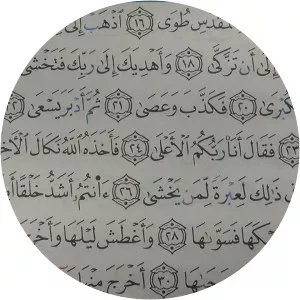 طُوًى ١٦ ٱذْهَبْ إِلَىٰ
إِلَىٰٓ أَن تَزَكَّىٰ ١٨ وَأَهْدِيَكَ إِلَىٰ رَبِّكَ فَتَخْشَىٰ
ٱلْكُبْرَىٰ ٢٠ فَكَذَّبَ وَعَصَىٰ ٢١ ثُمَّ أَدْبَرَ يَسْعَىٰ
فَقَالَ أَنَا۠ رَبُّكُمُ ٱلْأَعْلَىٰ ٢٤ فَأَخَذَهُ ٱللَّهُ نَكَالَ
ذَٰلِكَ لَعِبْرَةً لِّمَن يَخْشَىٰٓ ٢٦ ءَأَنتُمْ أَشَدُّ خَلْقًا
فَسَوَّىٰهَا ٢٨ وَأَغْطَشَ لَيْلَهَا
٣٠ أَخْرَجَ مِنْهَا